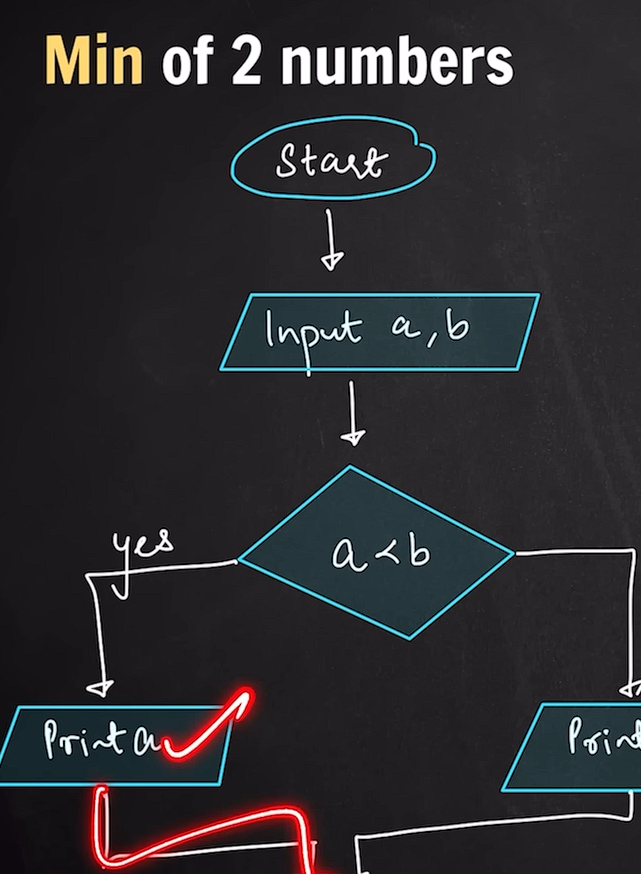 Min of 2 numbers
Start
Input a, b
a<b
yes
Print a
Print